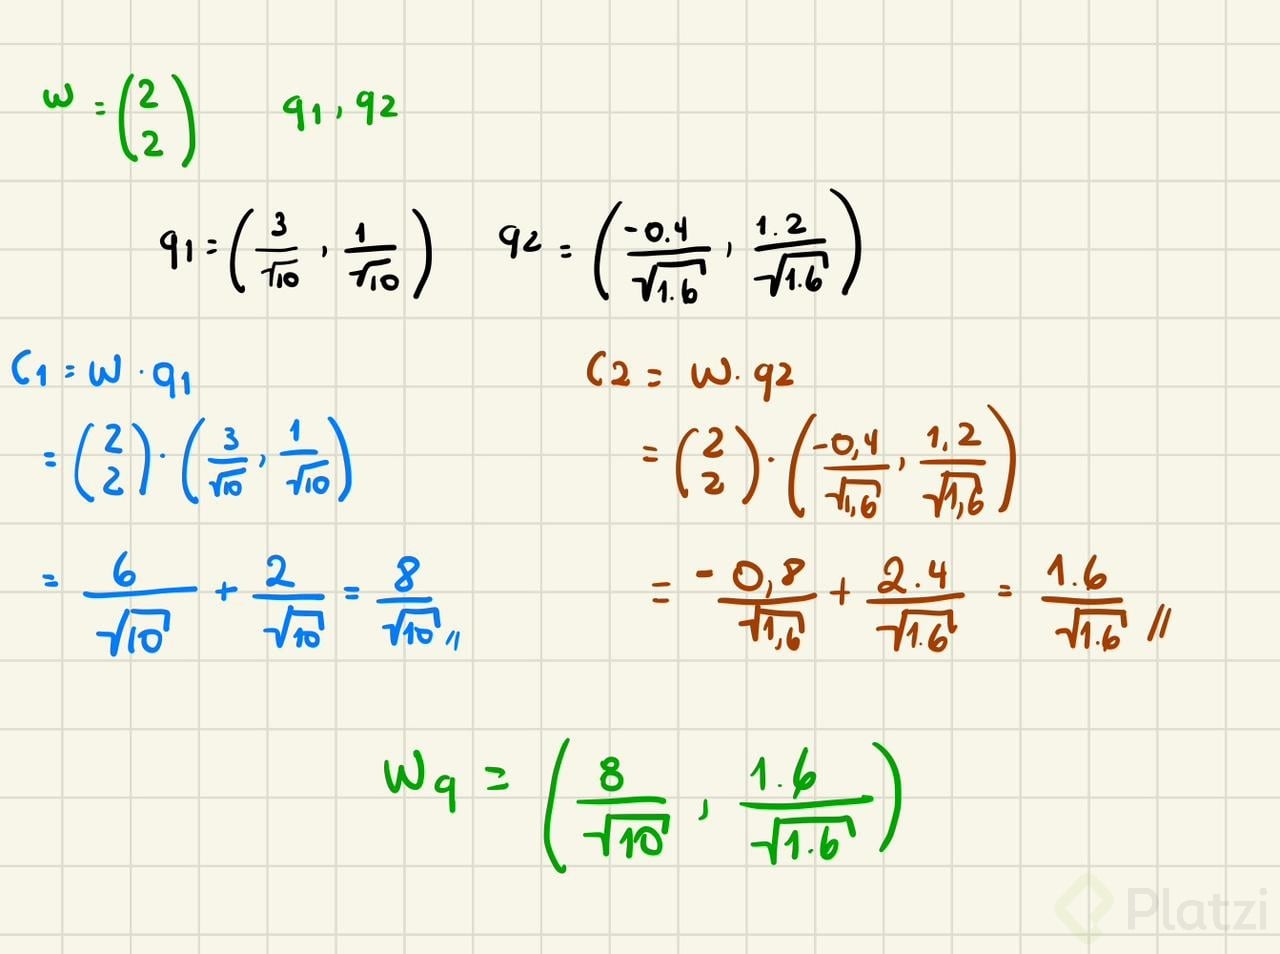 w = (2 2) q1, q2
q1 = (3/√10, 1/√10) q2 = (-0.4/√1.6, 1.2/√1.6)
C1 = w · q1
= (2 2) · (3/√10, 1/√10)
= 6/√10 + 2/√10 = 8/√10 //
C2 = w · q2
= (2 2) · (-0,4/√1,6, 1,2/√1,6)
= -0,8/√1,6 + 2.4/√1.6 = 1.6/√1.6 //
Wq = (8/√10, 1.6/√1.6)
Platzi